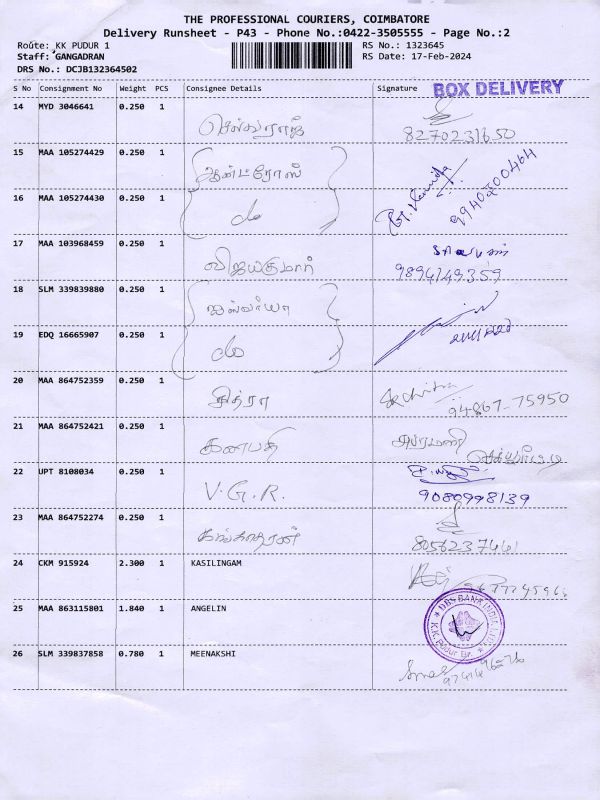 THE PROFESSIONAL COURIERS, COIMBATORE
Delivery Runsheet - P43 - Phone No.:0422-3505555 - Page No.:2
Route: KK PUDUR 1 RS No.: 1323645
Staff: GANGADRAN RS Date: 17-Feb-2024
DRS No.: DCJB132364502
BOX DELIVERY
S No Consignment No Weight PCS Consignee Details Signature
14 MYD 3046641 0.250 1 செல்வராஜ்
8270231650
15 MAA 105274429 0.250 1 ஆன்ட்ரோஸ்
9940500464
16 MAA 105274430 0.250 1 do
17 MAA 103968459 0.250 1 விஜய்குமார்
9894149359
18 SLM 339839880 0.250 1 ஐஸ்வர்யா
19 EDQ 16665907 0.250 1 do
20 MAA 864752359 0.250 1 சித்ரா
94867-75950
21 MAA 864752421 0.250 1 கணபதி
22 UPT 8108034 0.250 1 V.G.R.
9080998139
23 MAA 864752274 0.250 1 கங்காதரன்
24 CKM 915924 2.300 1 KASILINGAM
25 MAA 863115801 1.840 1 ANGELIN
DBS BANK INDIA
K.K. Pudur Br.
26 SLM 339837858 0.780 1 MEENAKSHI